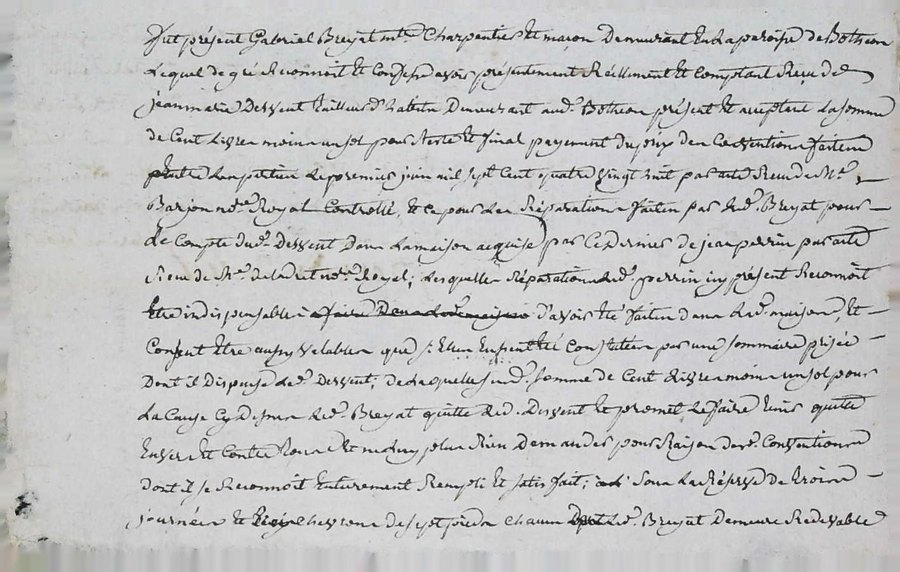 fut présent Gabriel Breyat mtre Charpentier Et maçon Demeurant En La paroisse de Bothéon
Lequel de gré Reconnoit Et Confesse avoir présentement Réellement Et Comptant Reçu de
jeanmarie Dessent Tailleur D'habits Demeurant aud. Bothéon présent Et acceptant La somme
de Cent Livres moins un sol pour Reste Et final payement du prix des Conventions faites
Entre Les parties Le premier juin mil sept Cent quatre vingt huit par acte Reçu de Me
Barjon nore Royal Controllé, Et ce pour Les Réparations faites par Led. Breyat pour
Le Compte dud. Dessent Dans La maison acquise par Ce Dernier de jean perrin par acte
Reçu de Me nore Royal; Lesquelles Réparations Led. perrin icy présent Reconnoit
Etre indispensables D'avoir été faites dans Lad. maison, Et
Consent Etre aussy valables que si Elles Eussent été Constatées par une sommaire prisée
Dont il Dispense Led. Dessent; de Laquelle susd. somme de Cent Livres moins un sol pour
La Cause Cy Dessus Led. Breyat quitte Led. Dessent Et promet Le faire tenir quitte
Envers Et Contre tous Et n'en plus Rien Demander pour Raison desd. Conventions
dont il se Reconnoit Entierement Rempli Et satisfait; Sous La Réserve de trois
journées Et Chevrons de sept pieds Chacun Led. Breyat Demeure Redevable